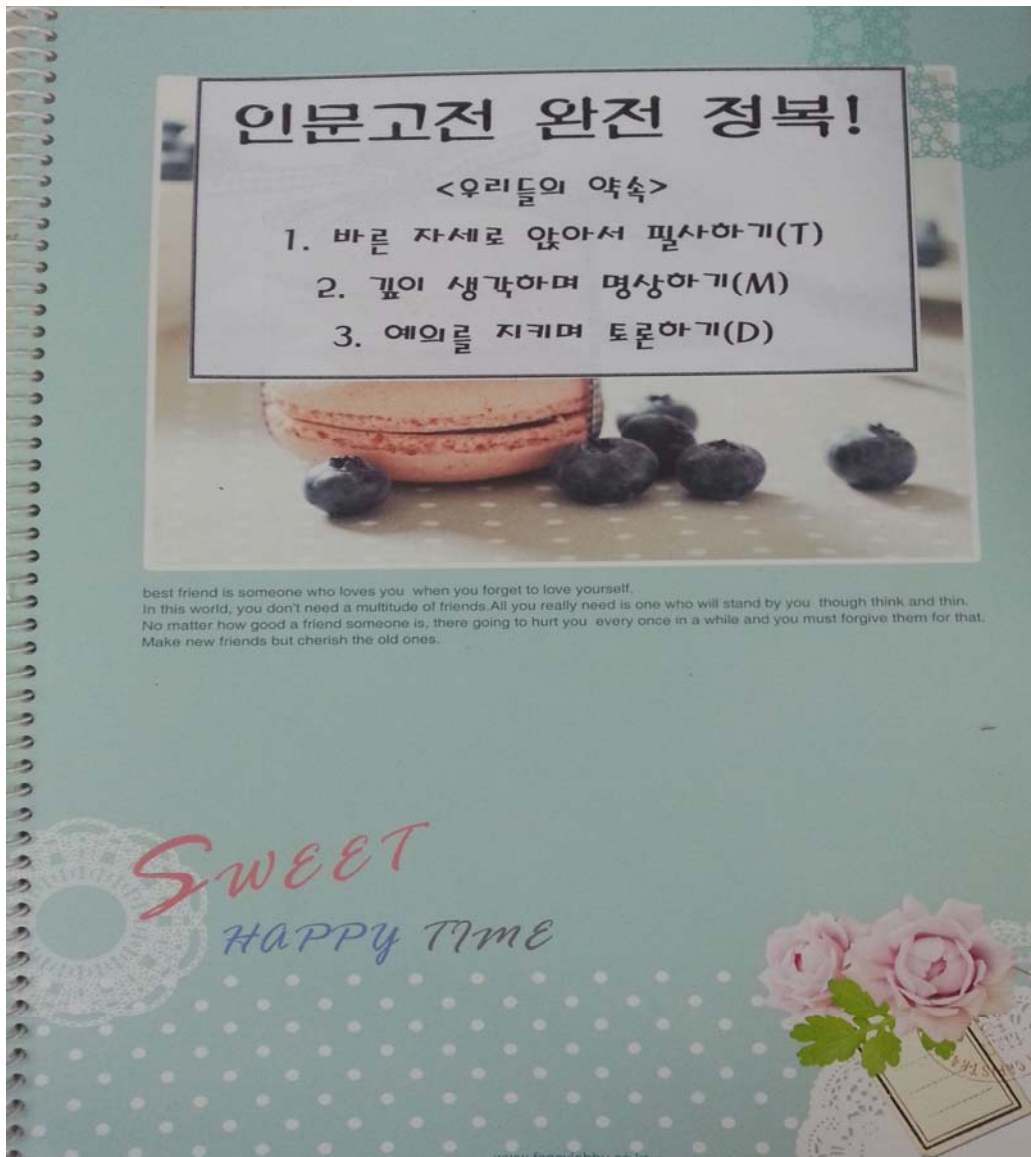 인문고전 완전 정복!
<우리들의 약속>
1. 바른 자세로 앉아서 필사하기(T)
2. 깊이 생각하며 명상하기(M)
3. 예의를 지키며 토론하기(D)
best friend is someone who loves you when you forget to love yourself.
In this world, you don't need a multitude of friends.All you really need is one who will stand by you though think and thin.
No matter how good a friend someone is, there going to hurt you every once in a while and you must forgive them for that.
Make new friends but cherish the old ones.
SWEET
HAPPY TIME